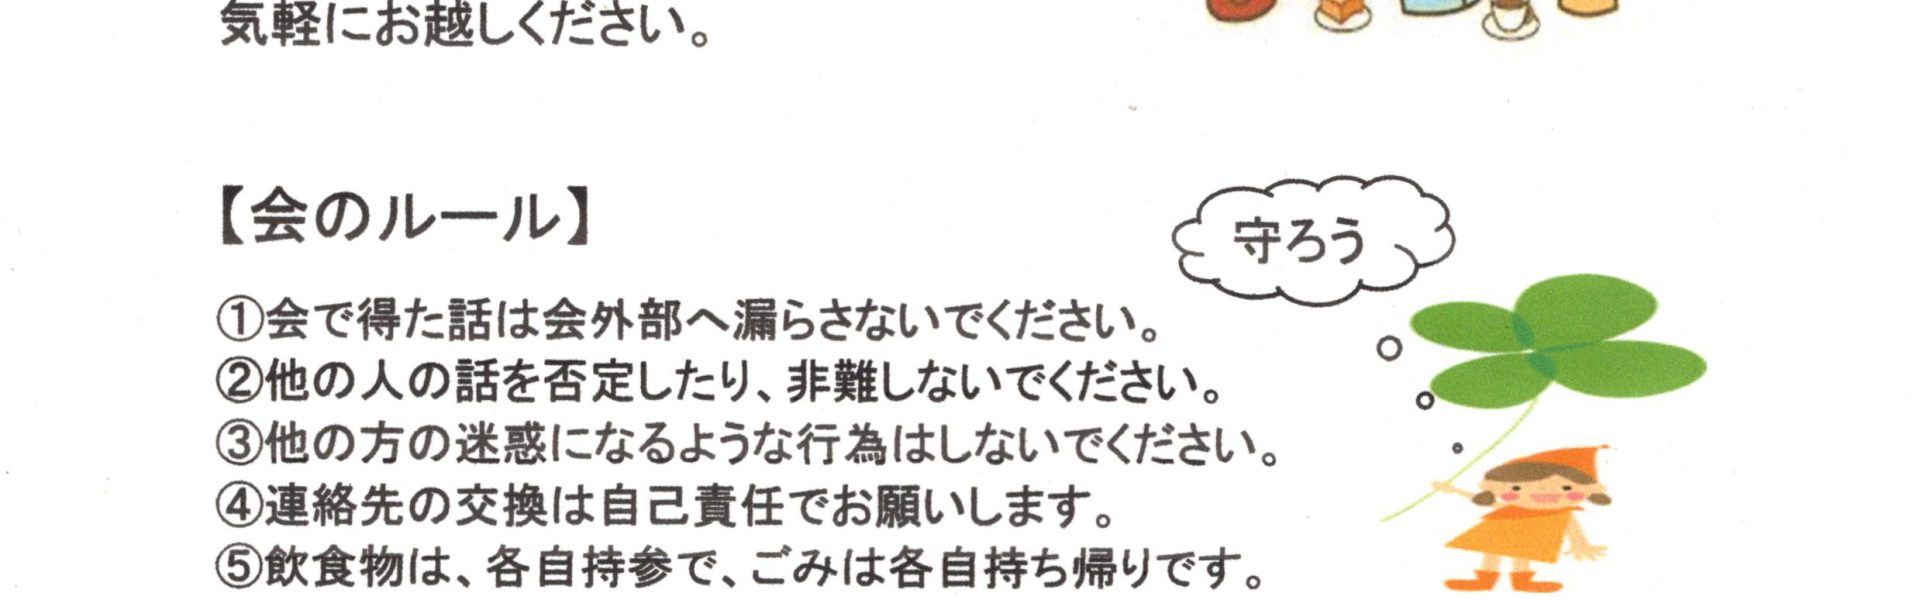 気軽にお越しください。
【会のルール】
守ろう
①会で得た話は会外部へ漏らさないでください。
②他の人の話を否定したり、非難しないでください。
③他の方の迷惑になるような行為はしないでください。
④連絡先の交換は自己責任でお願いします。
⑤飲食物は、各自持参で、ごみは各自持ち帰りです。